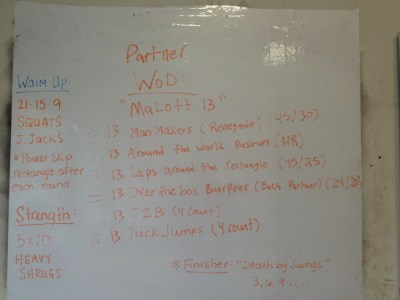 Partner
WOD:
"MaLott 13"
- 13 Man Makers (Renegade) (45/30)
- 13 Around the world Pushups (HR)
- 13 Laps around the rectangle (45/25)
- 13 Over the box Burpees (Each Partner) (24/20)
- 13 T2B (4 count)
- 13 Tuck Jumps (4 count)
* Finisher: "Death by Swings"
3, 6, 9 ......
Warm Up:
21-15-9
SQUATS
J. Jacks
*Power Skip
rectangle after
each round
Strength:
5x10
HEAVY
SHRUGS